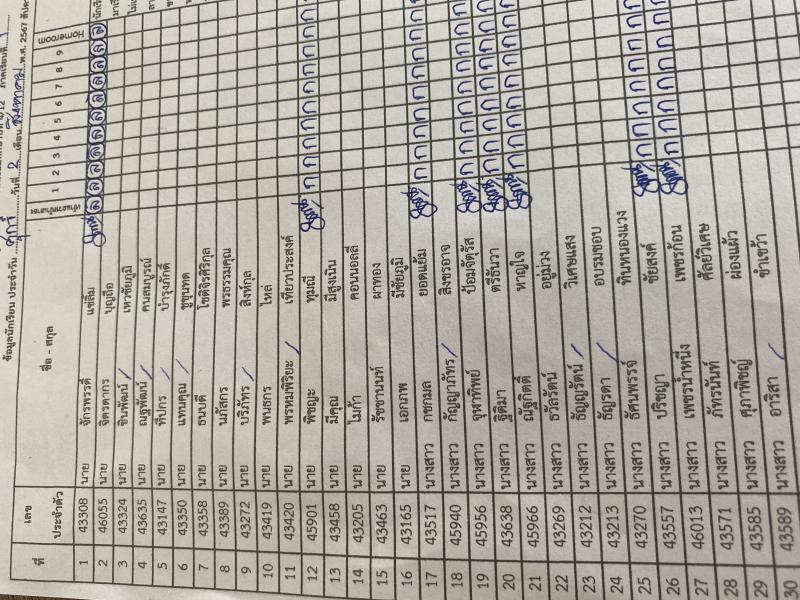 ข้อมูลนักเรียน ประจำวัน ศุกร์ วันที่ 2 เดือน พ.ศ. 2567
ที่ เลขประจำตัว ชื่อ - สกุล 1 2 3 4 5 6 7 8 9 Homeroom
1 43308 นาย จักรพรรดิ์ แซ่ลิ้ม ล ล ล ล ล ล ล ล ล ล
2 46055 นาย จิตรดากร บุญถือ
3 43324 นาย ชินพัฒน์ / เหวชัยภูมิ
4 43635 นาย ณฐพัฒน์ / คนสมบูรณ์
5 43147 นาย ทีปกร / บำรุงภักดิ์
6 43350 นาย แทนคุณ / ชูขุนทด
7 43358 นาย ธนบดี โชติจิรศิริกุล
8 43389 นาย นภัสกร พรธรรมคุณ
9 43272 นาย บริภัทร / สิงห์กุล
10 43419 นาย พนธกร ไหล่
11 43420 นาย พรหมพิริยะ / เทียวประสงค์
12 45901 นาย พิชญะ ทุมณี ก ก ก ก ก ก ก ก ก
13 43458 นาย มีคุณ มีสูงเนิน
14 43205 นาย ไมก้า ดอนนอลลี
15 43463 นาย รัชชานนท์ ผาทอง
16 43165 นาย เอกภพ มีชัยภูมิ
17 43517 นางสาว กชกมล ยอดแย้ม ก ก ก ก ก ก ก ก ก
18 45940 นางสาว กัญญาภัทร / สิงขรอาจ
19 45956 นางสาว จุฬาทิพย์ ป้อมจัตุรัส ก ก ก ก ก ก ก ก ก
20 43638 นางสาว ฐิติมา ศรีธันวา ก ก ก ก ก ก ก ก ก
21 45966 นางสาว ณัฐกิตติ์ หาญใจ ก ก ก ก ก ก ก ก ก
22 43269 นางสาว ธวัลรัตน์ อยู่ม่วง
23 43212 นางสาว ธัญญรัตน์ / วิเศษแสง
24 43213 นางสาว ธัญรดา / อบรมชอบ
25 43270 นางสาว ธัศนพรรจ์ ทินหนองแวง
26 43557 นางสาว ปริชญา ชัยสงค์ ก ก ก ก ก ก ก ก ก
27 46013 นางสาว เพชรน้ำหนึ่ง เพชรก้อน ก ก ก ก ก ก ก ก ก
28 43571 นางสาว ภัทรนันท์ ศัลย์วิเศษ
29 43585 นางสาว ศุภาพิชญ์ ผ่องแผ้ว
30 43589 นางสาว อาริสา / ช้ำเขว้า